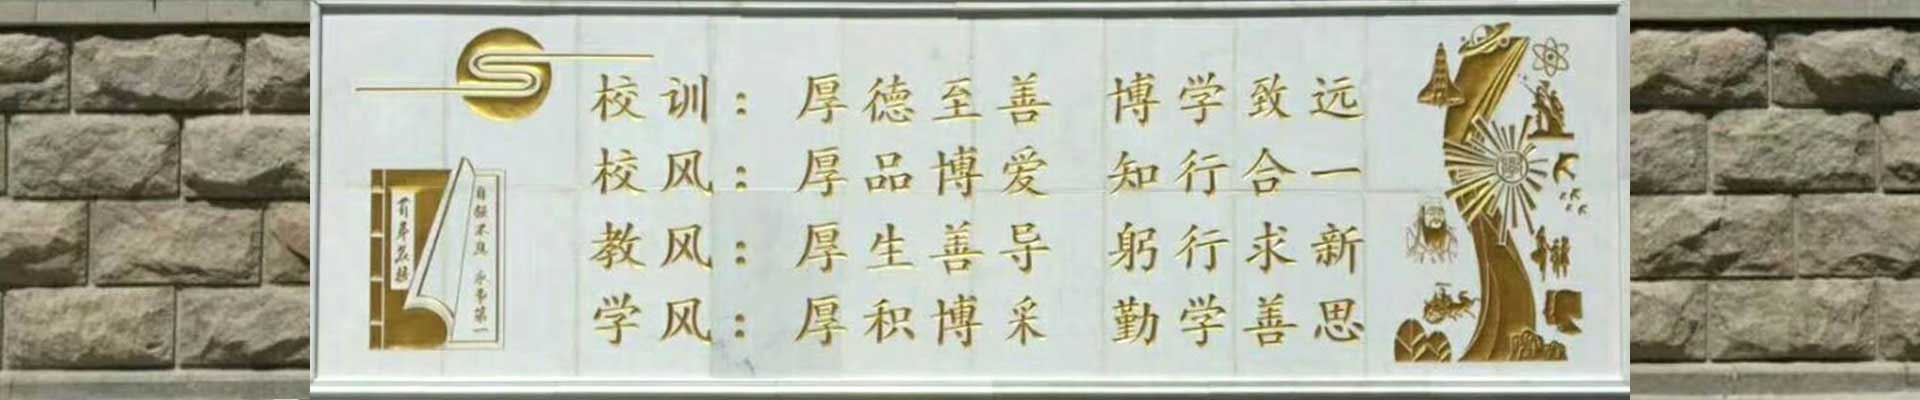 校训：厚德至善 博学致远
校风：厚品博爱 知行合一
教风：厚生善导 躬行求新
学风：厚积博采 勤学善思
自强不息 永争第一